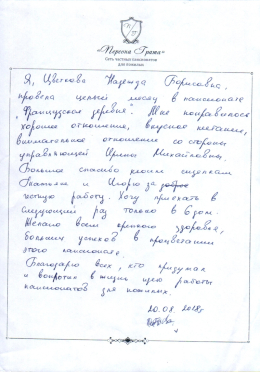 «Первая Грата»
Сеть частных пансионатов
для пожилых
Я, Цветкова Надежда Борисовна,
провела целый месяц в пансионате
"Французская деревня". Мне понравилось
хорошее отношение, вкусное питание,
внимательное отношение со стороны
управляющей Ирины Михайловны.
Большое спасибо моим сиделкам
Наталье и Игорю за добро
чуткую работу. Хочу приехать в
следующий раз только в 6 дом.
Желаю всем крепкого здоровья,
больших успехов в процветании
этого пансионата.
Благодарю всех, кто придумал
и воплотил в жизнь идею работы
пансионатов для пожилых.
20.08.2018г.